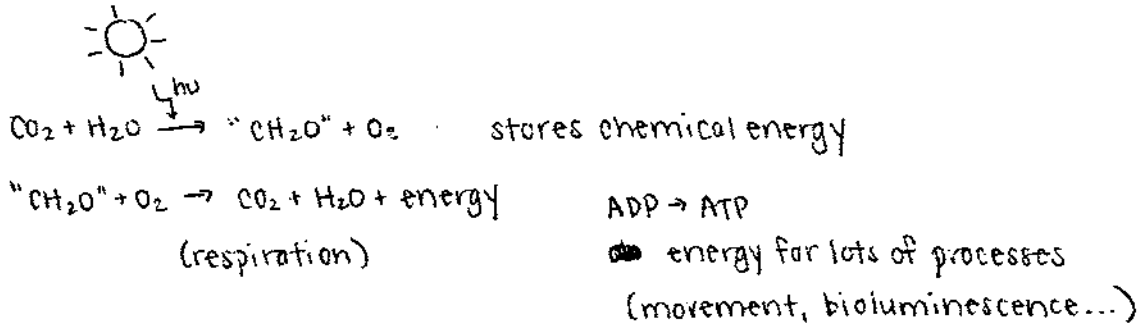 hν
CO₂ + H₂O → "CH₂O" + O₂ stores chemical energy
"CH₂O" + O₂ → CO₂ + H₂O + energy
(respiration)
ADP → ATP
energy for lots of processes
(movement, bioluminescence...)